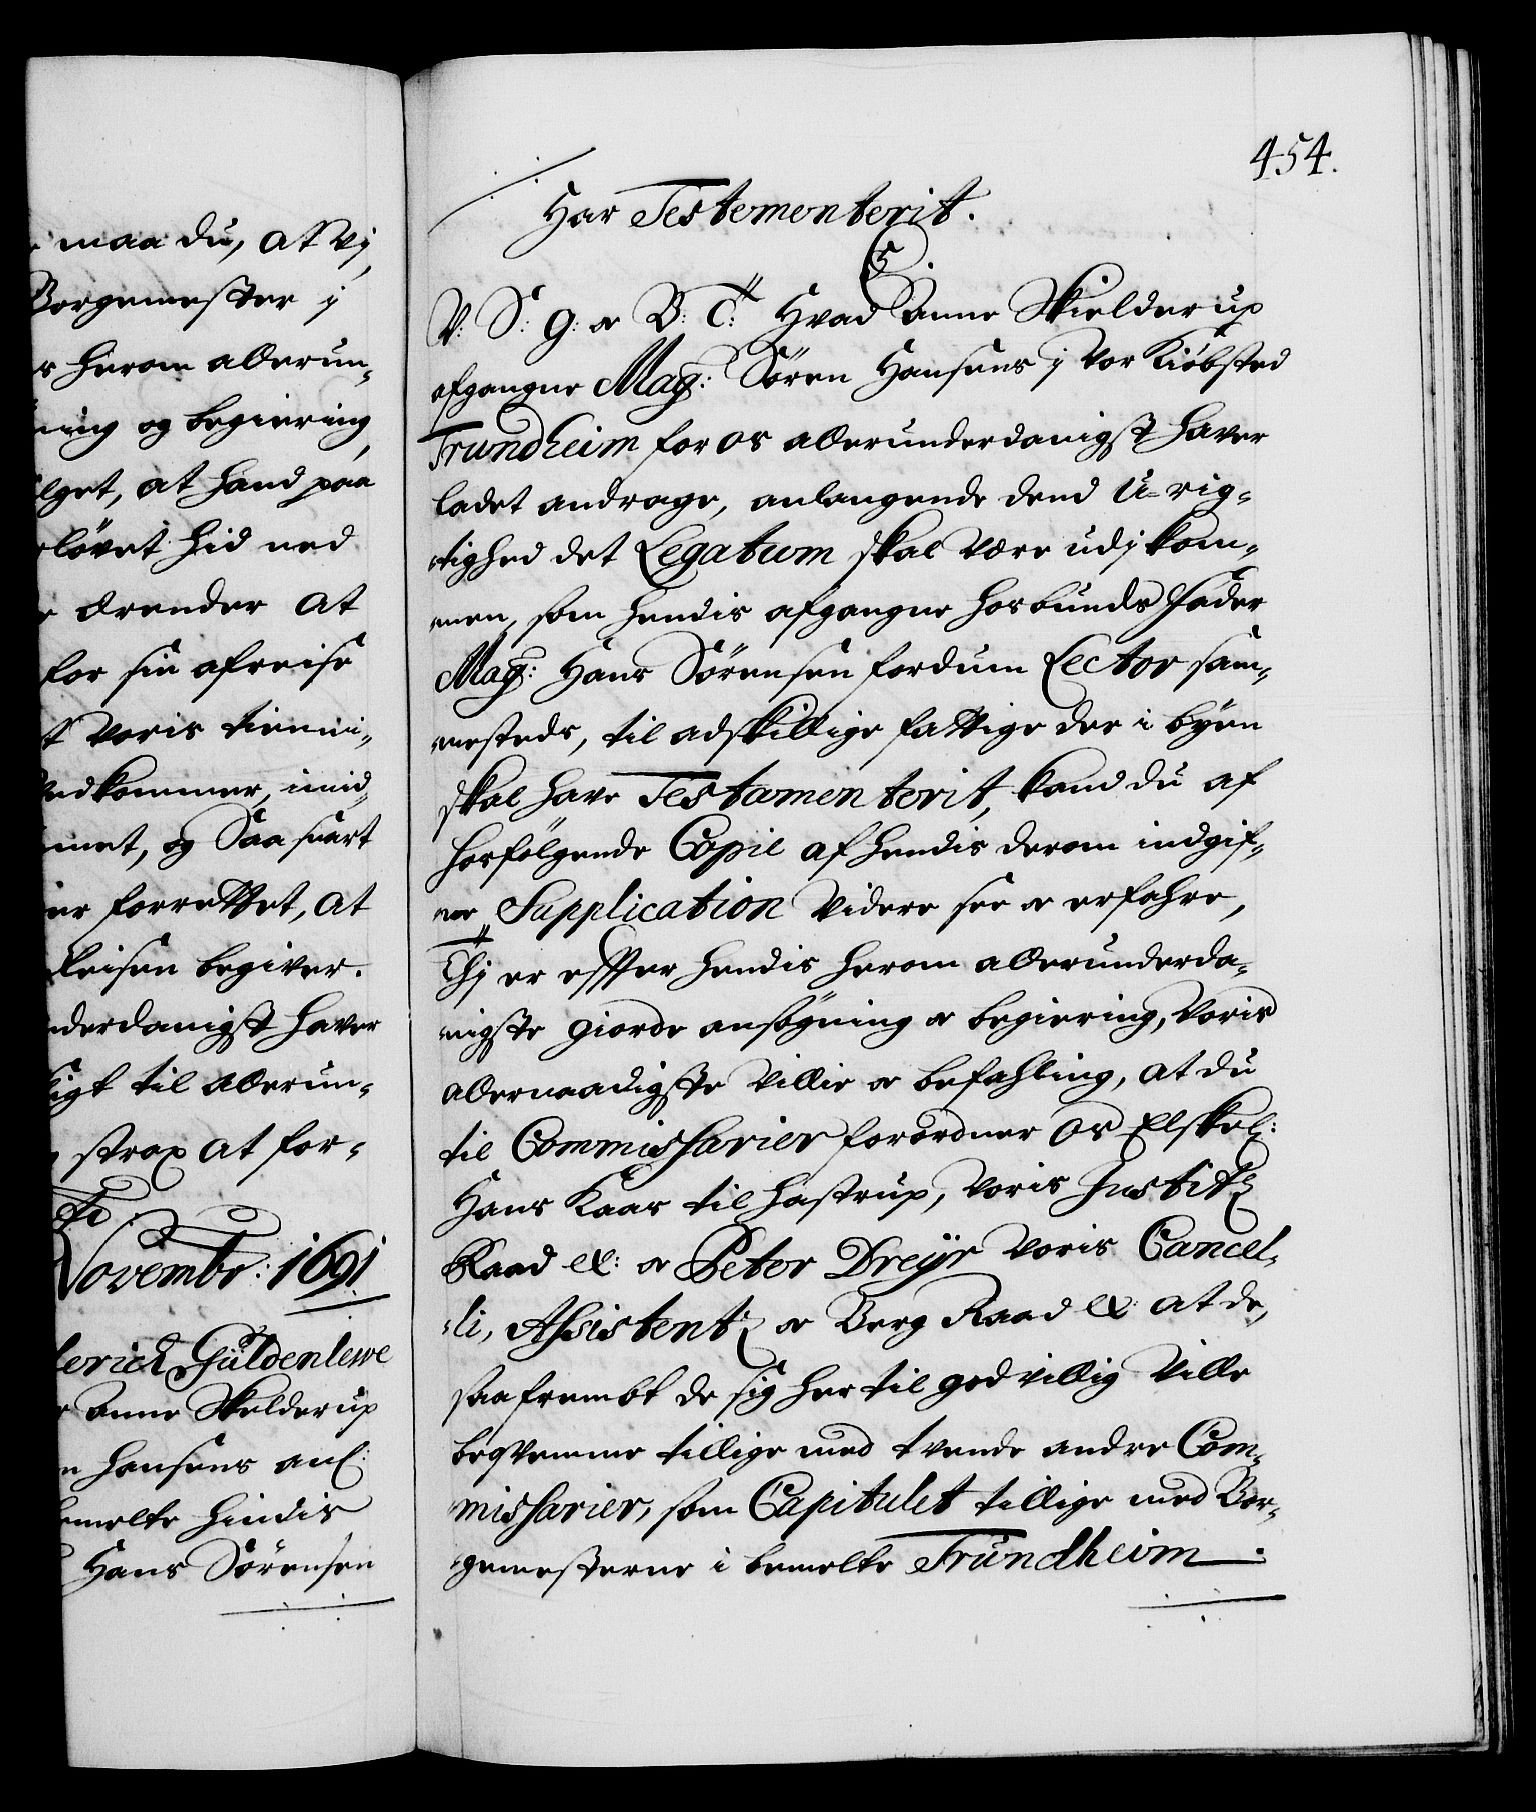 maa du, at Vj
Borgemester j
herom allerun-
ning og begiering
lget, at hand paa
løvet hid ned
ærender at
for sin afreise
Voris tienni-
vedkommer, imid-
met, og Saa snart
er forrettet, at
Reisen begiver.
nderdanigst haver
ligt til allerun-
strax at for-
Novembr: 1691
derich Güldenlewe
Anne Skelderup
hansens anl:
bemelte hindis
Hans Sörensen
454.
Har Testementerit.
5.
V: S: G: oc B: T: Hvad Anne Skielderup
afgangne Mag: Sören Hansens j Vor Kiøbsted
Trundheim for os allerunderdanigst haver
ladet andrage, anlangende dend U-rig-
tighed det Legatum skal være udj kom-
men, som hendis afgangne hosbunds Fader
Mag: Hans Sörensen fordum Lector sam-
mesteds, til adskillige fattige der i byen
skal have Testamenterit, kand du af
hosfølgende Copie af hendis derom indgif-
ne Supplication Videre see oc erfahre,
Thj er effter hendis herom allerunderda-
nigste giorde ansøgning oc begiering, Voris
allernaadigste Villie oc befahling, at du
til Commissarier forordner Os Elskel:
Hans Kaas til Hastrup, Voris Justitz
Raad etc: oc Peter Dreyer Voris Cancel-
li, Assistentz oc Berg Raad etc: at de,
saafrembt de sig her til godvillig Ville
beqvemme tillige med tvende andre Com-
missarier, som Capitulet tillige med Bor-
gemesterne i bemelte Trundheim